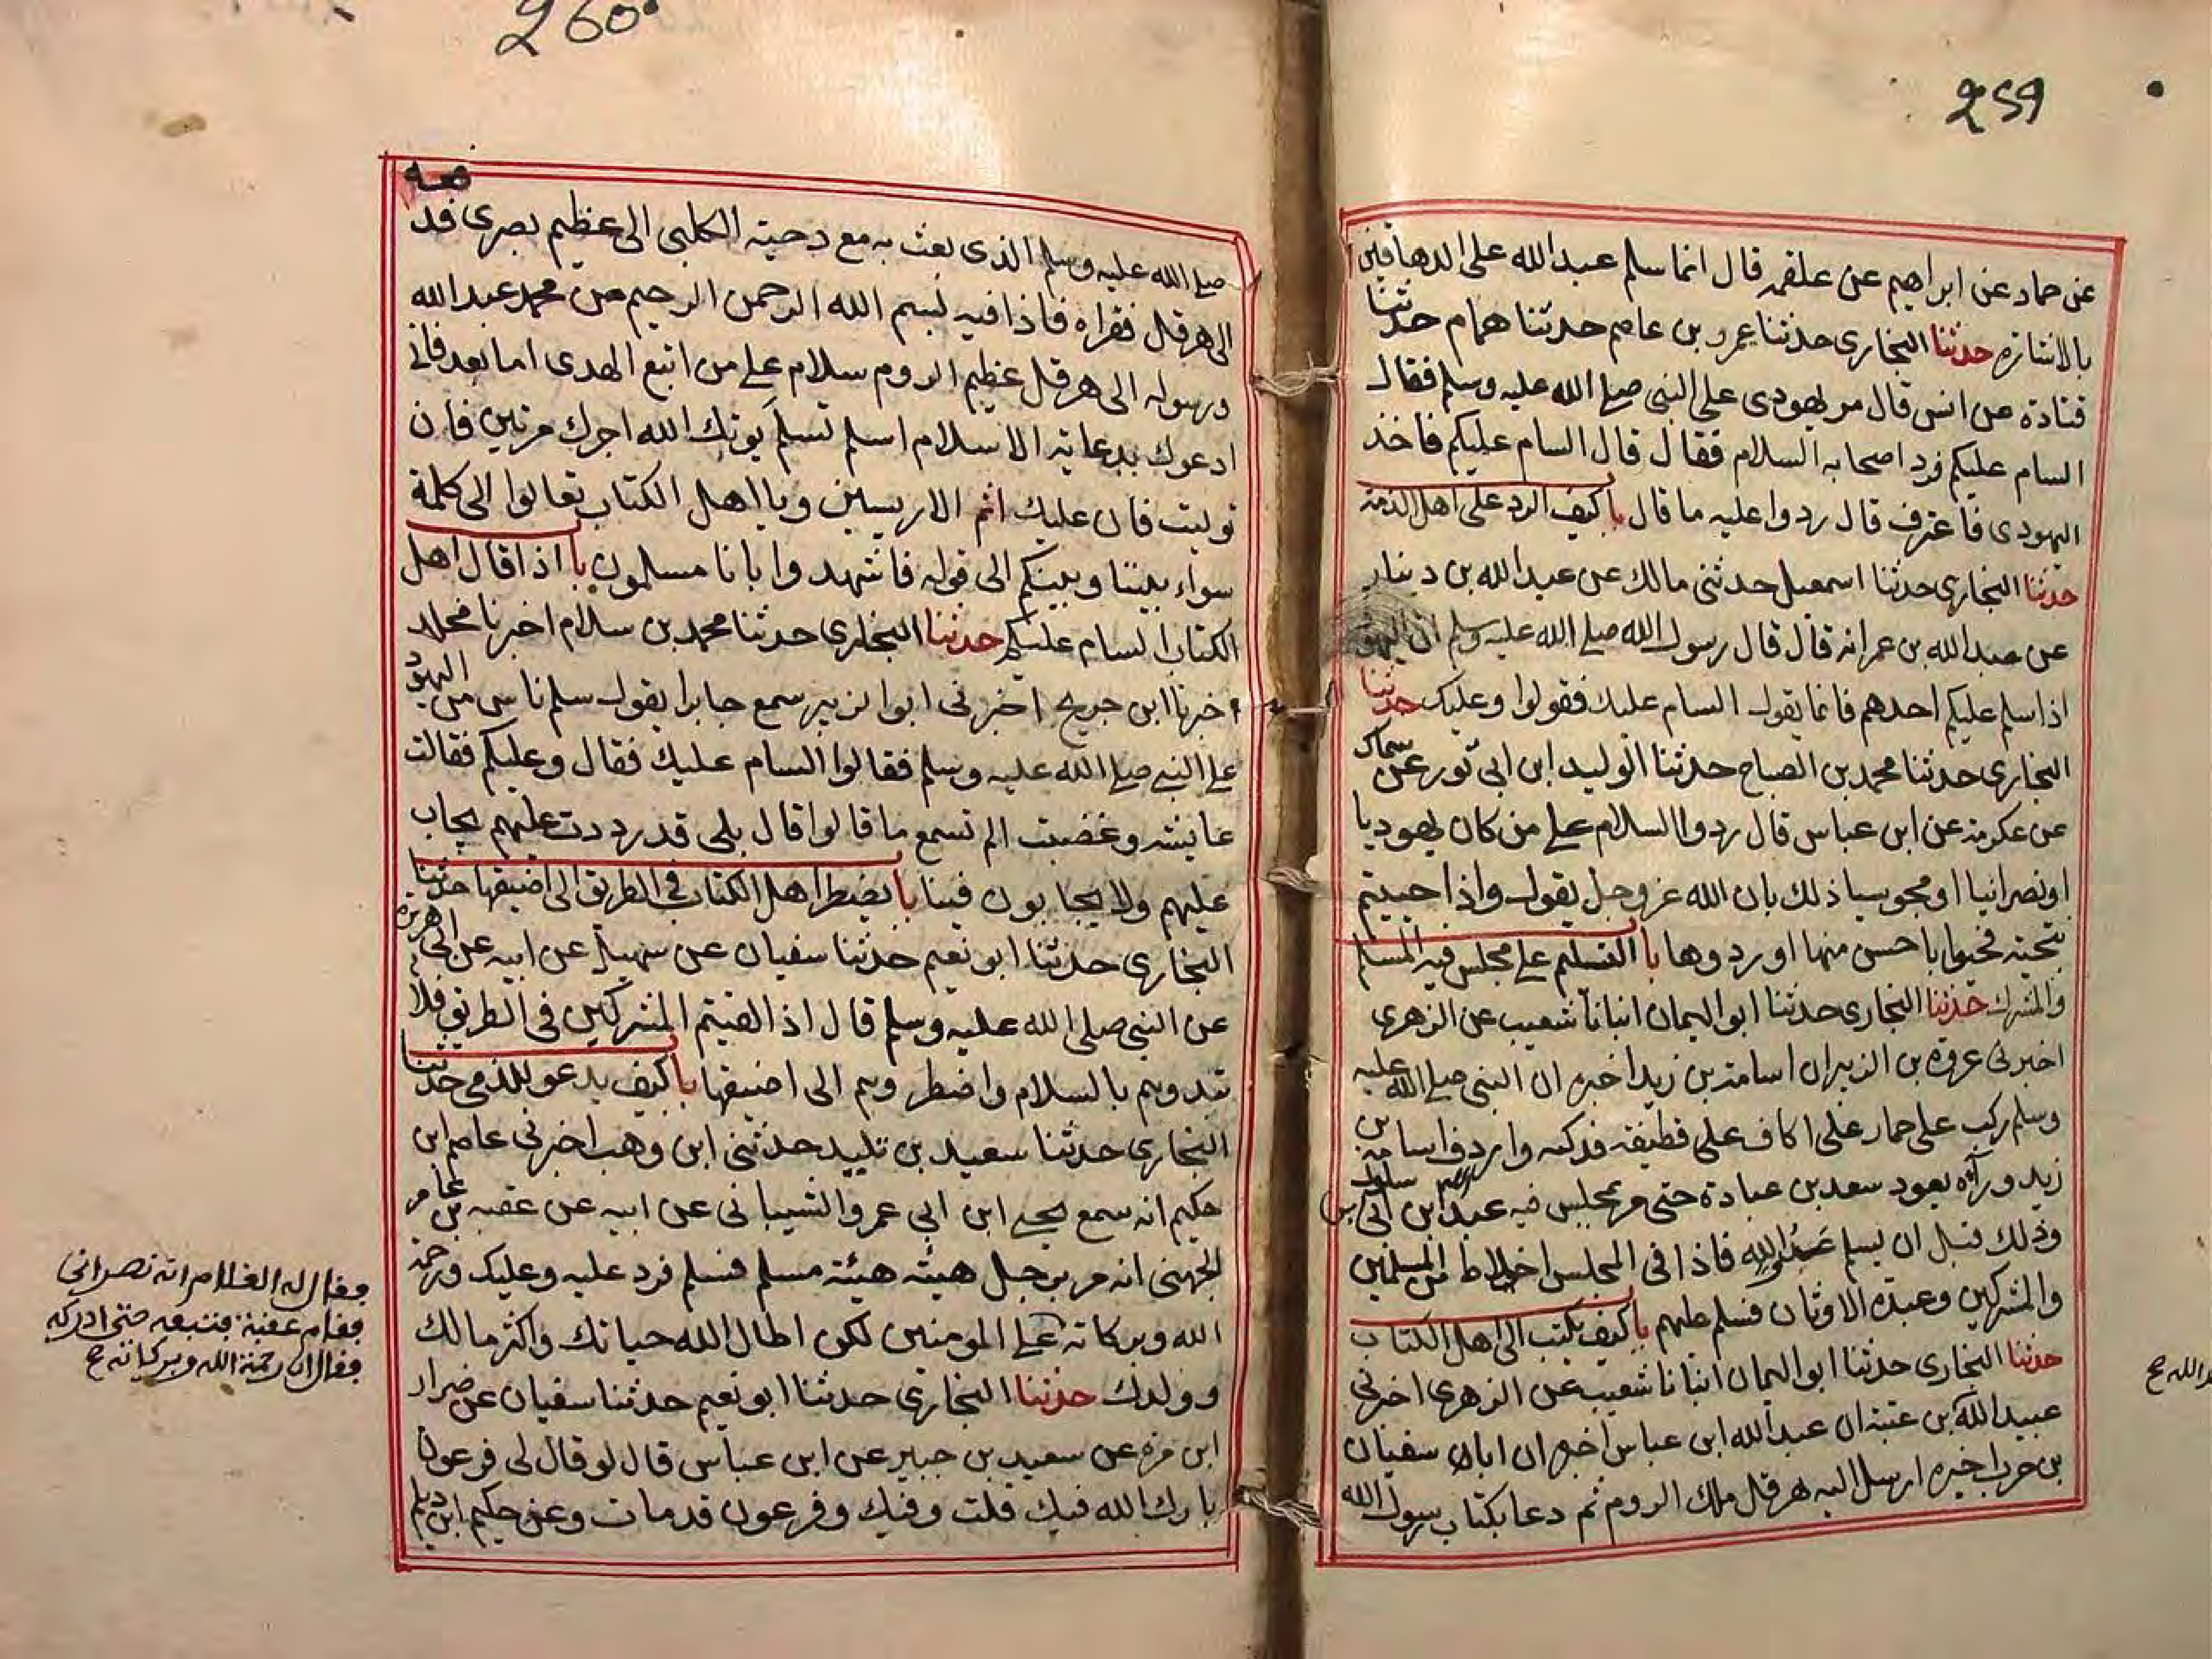 259
عن حماد عن ابراهيم عن علقمة قال انما سلم عبد الله على الدهاقين
بالاشارة حدثنا البخارى حدثنا عمرو بن عاصم حدثنا همام حدثنا
قتادة عن انس قال مر يهودى على النبى صلى الله عليه وسلم فقال
السام عليكم فرد اصحابه السلام فقال قال السام عليكم فاخذ
اليهودى فاعترف قال ردوا عليه ما قال با كيف الرد على اهل الذمة
حدثنا البخارى حدثنا اسمعيل حدثنى مالك عن عبد الله بن دينار
عن عبد الله بن عمر انه قال قال رسول الله صلى الله عليه وسلم ان اليهود
اذا سلم عليكم احدهم فانما يقول السام عليك فقولوا وعليك حدثنا
البخارى حدثنا محمد بن الصباح حدثنا الوليد ابن ابى ثور عن سماك
عن عكرمة عن ابن عباس قال ردوا السلام على من كان يهوديا
او نصرانيا او مجوسيا ذلك بان الله عز وجل يقول واذا حييتم
بتحية فحيوا باحسن منها او ردوها با التسليم على مجلس فيه المسلم
والمشرك حدثنا البخارى حدثنا ابو اليمان انبانا شعيب عن الزهرى
اخبرنى عروة بن الزبير ان اسامة بن زيد اخبره ان النبى صلى الله عليه
وسلم ركب على حمار على اكاف على قطيفة فدكية واردف اسامة بن
زيد وراءه يعود سعد بن عبادة حتى مر بمجلس فيه عبد الله ابن ابى بن سلول
وذلك قبل ان يسلم عبد الله فاذا فى المجلس اخلاط من المسلمين
والمشركين وعبدة الاوثان فسلم عليهم با كيف يكتب الى اهل الكتاب
حدثنا البخارى حدثنا ابو اليمان انبانا شعيب عن الزهرى اخبرنى
عبيد الله بن عتبة ان عبد الله ابن عباس اخبره ان ابا سفيان
بن حرب اخبره ارسل اليه هرقل ملك الروم ثم دعا بكتاب رسول الله
260
صلى الله عليه وسلم الذى بعث به مع دحية الكلبى الى عظيم بصرى فدفعه
الى هرقل فقراه فاذا فيه بسم الله الرحمن الرحيم من محمد عبد الله
ورسوله الى هرقل عظيم الروم سلام على من اتبع الهدى اما بعد فانى
ادعوك بدعاية الاسلام اسلم تسلم يوتك الله اجرك مرتين فان
توليت فان عليك اثم الاريسين ويا اهل الكتاب تعالوا الى كلمة
سواء بيننا وبينكم الى قوله فاشهدوا بانا مسلمون با اذا قال اهل
الكتاب السام عليكم حدثنا البخارى حدثنا محمد بن سلام اخبرنا مخلد
اخبرنا ابن جريج اخبرنى ابو الزبير سمع جابرا يقول سلم ناس من اليهود
على النبى صلى الله عليه وسلم فقالوا السام عليك فقال وعليكم فقالت
عايشه وغضبت الم تسمع ما قالوا قال بلى قد رددت عليهم يجاب
عليهم ولا يجابون فينا با يضطر اهل الكتاب فى الطريق الى اضيقها حدثنا
البخارى حدثنا ابو نعيم حدثنا سفيان عن سهيل عن ابيه عن ابى هريرة
عن النبى صلى الله عليه وسلم قال اذا لقيتم المشركين فى الطريق فلا
تبدوهم بالسلام واضطروهم الى اضيقها با كيف يدعو للذمى حدثنا
البخارى حدثنا سعيد بن تليد حدثنى ابن وهب اخبرنى عاصم ابن
حكيم انه سمع يحيى ابن ابى عمرو الشيبانى عن ابيه عن عقبة بن عامر
الجهنى انه مر برجل هيئته هيئة مسلم فسلم فرد عليه وعليك ورحمة
الله وبركاته على المومنين لكن اطال الله حياتك واكثر مالك
وولدك حدثنا البخارى حدثنا ابو نعيم حدثنا سفيان عن ضرار
ابن مرة عن سعيد بن جبير عن ابن عباس قال لو قال لى فرعون
بارك الله فيك قلت وفيك وفرعون قد مات وعن حكيم ابن ديلم
فقال له الغلام انه نصرانى
فقام عقبة فتبعه حتى ادركه
فقال ان رحمة الله وبركاته